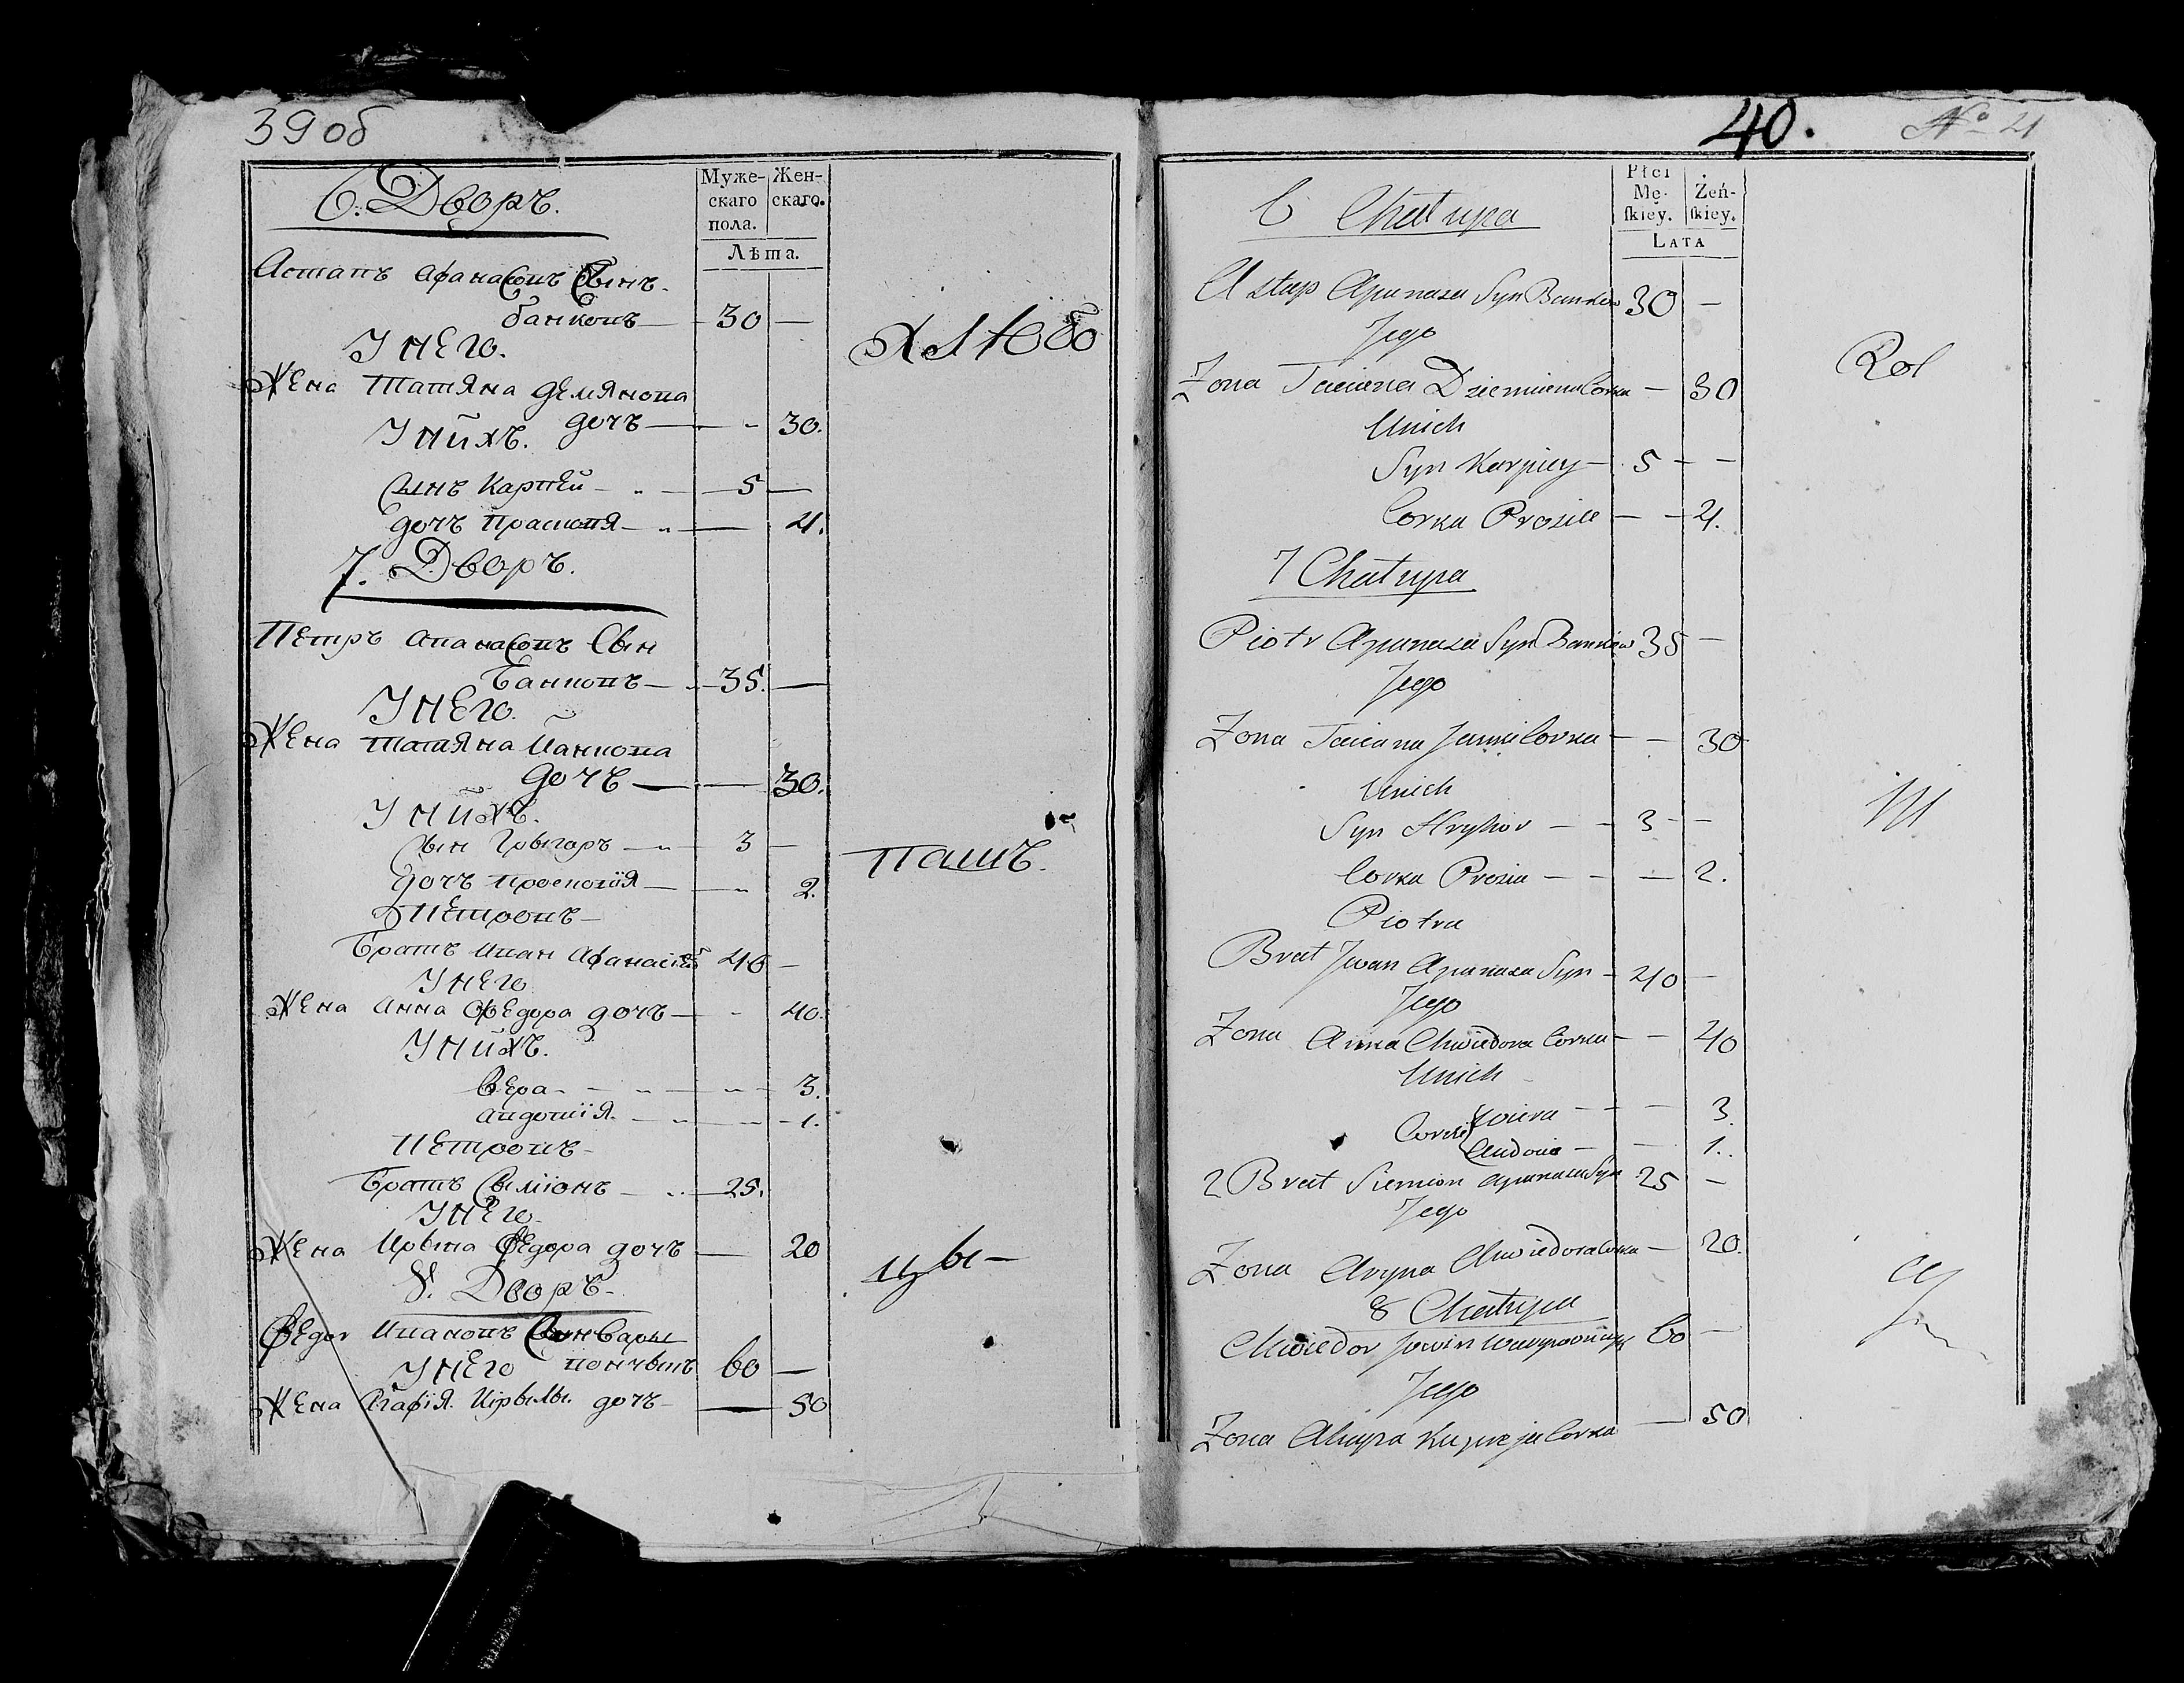 39 об
6. Дворъ.
Муже-
скаго
пола.
Жен-
скаго.
Лѣта.
Астапъ Афанасовъ Сынъ
банковъ — 30 —
У нЕго.
ЖЕна татяна дЕмянова
дочъ — 30.
У нйхъ.
Сынъ Карпѣй — 5 —
дочъ 4.
7. Дворъ.
ПЕтръ апанасовъ Сын
Банковъ — 35. —
У нЕго.
ЖЕна татяна Ианкова
дочъ — 30.
У нйхъ.
Сын Грыгоръ — 3 —
дочъ 2.
ПЕтровъ —
Братъ иван 40 —
У нЕго
ЖЕна анна фЕдора дочъ — 40.
У нйхъ.
вЕра — 3.
авдоція — 1.
ПЕтровъ —
Братъ Сыміонъ — 25.
У нЕго
ЖЕна Ирына фЕдора дочъ — 20
8. Дворъ.
фЕдор ивановъ Сын
У нЕго 60 —
ЖЕна дочъ — 50
хлЮб
пашъ.
цы —
40.
№ 21
6 Chałupa
Płci
Mę-
ſkiey.
Żeń-
ſkiey.
LATA
Astap Apanasa Syn Bankow 30 —
Jego
Zona Taciana Dziemiana Corka — 30
Unich
Syn Karpiey — 5 — —
Corka Prosia — — 4.
7 Chałupa
Piotr Apanasa Syn Bankow 35 —
Jego
Zona Taciana Janka Corka — — 30
Unich
Syn Hryhor — — 3 — —
Corka Prosia — — — 2.
Piotra
Brat Jwan Apanasa Syn — 40 —
Jego
Zona Anna Chwiedora Corka — — 40
Unich
Corki Wiera — — — 3.
Audocia — — 1.
2 Brat Siemion Apanasa Syn 25 —
Jego
Zona Aryna Chwiedora Corka — 20.
8 Chałupa
Chwiedor Jwan 60 —
Jego
Zona Ahapa Corka — 50
Rol